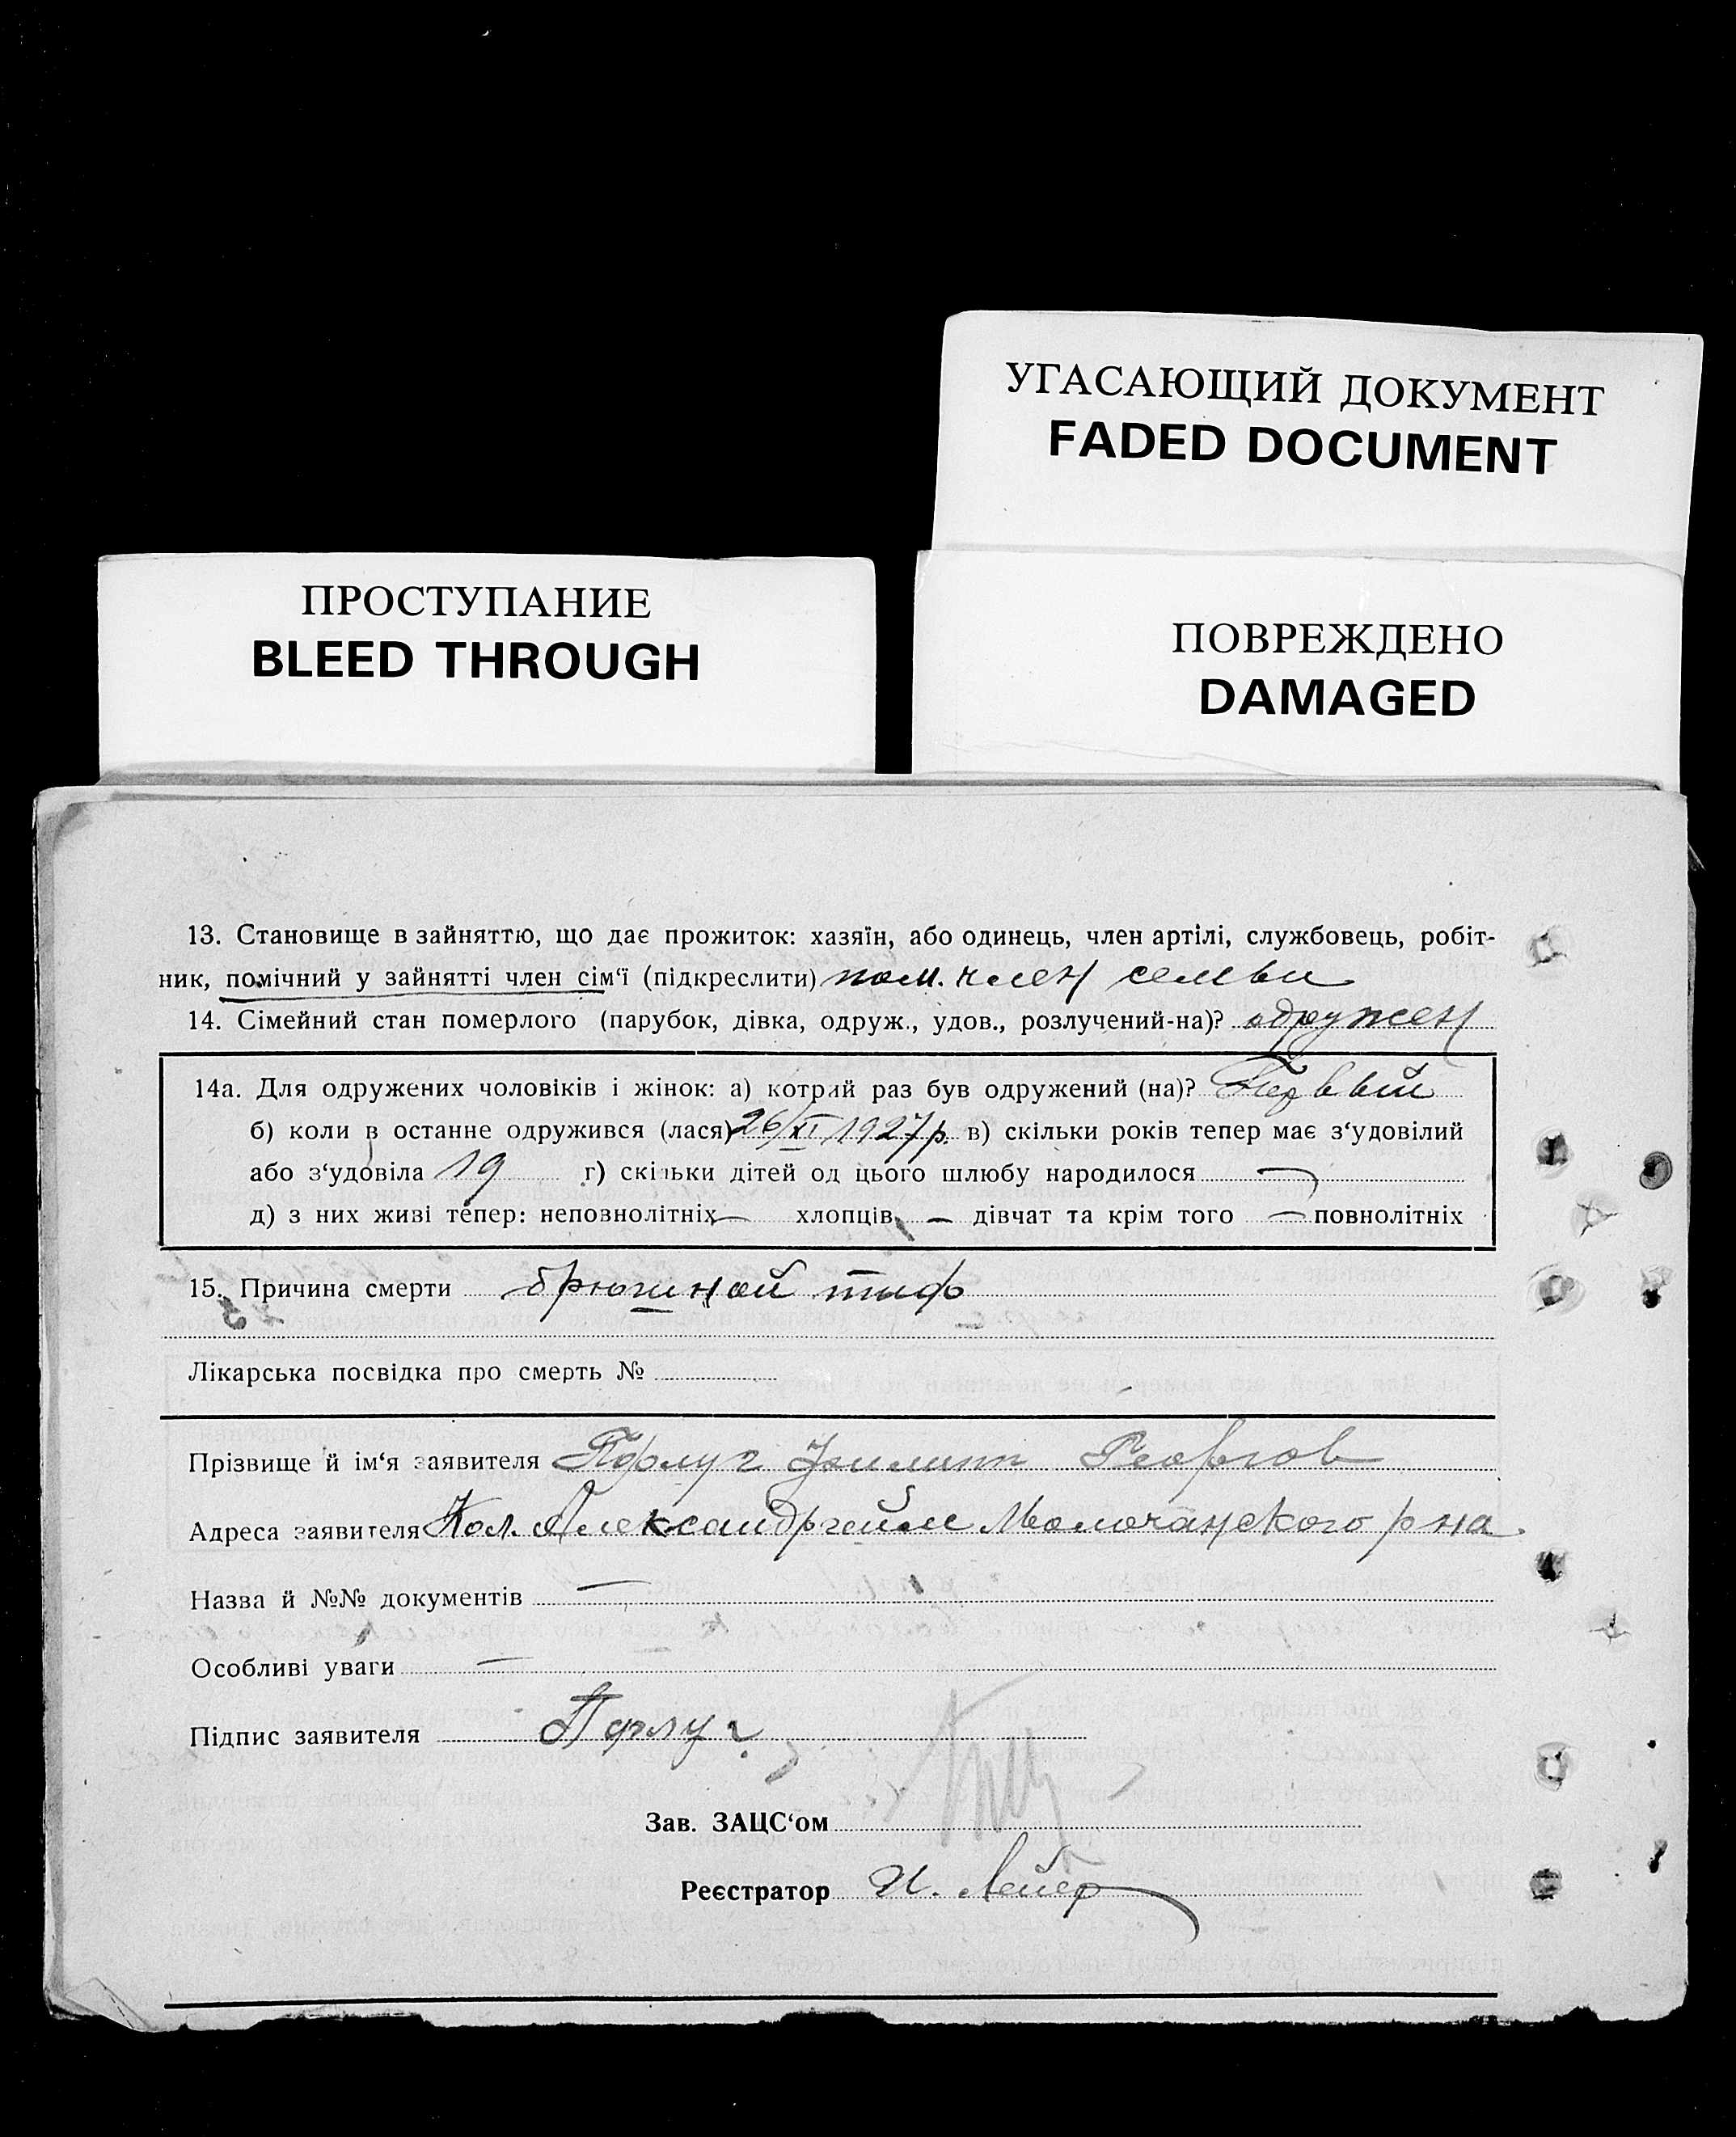 УГАСАЮЩИЙ ДОКУМЕНТ
FADED DOCUMENT
ПРОСТУПАНИЕ
BLEED THROUGH
ПОВРЕЖДЕНО
DAMAGED
13. Становище в зайняттю, що дає прожиток: хазяїн, або одинець, член артілі, службовець, робіт-
ник, помічний у зайнятті член сім‘ї (підкреслити) пом. член семьи
14. Сімейний стан померлого (парубок, дівка, одруж., удов., розлучений-на)? одружен
14а. Для одружених чоловіків і жінок: а) котрий раз був одружений (на)? Первый
б) коли в останне одружився (лася) 26/XI 1927 р. в) скільки років тепер має з‘удовілий
або з‘удовіла 19 г) скільки дітей од цього шлюбу народилося —
д) з них живі тепер: неповнолітніх — хлопців — дівчат та крім того — повнолітніх
15. Причина смерти брюшной тиф
Лікарська посвідка про смерть №
Прізвище й ім‘я заявителя Пфлуг Филипп Георгов
Адреса заявителя Кол. Александргейм Молочанского р на
Назва й №№ документів —
Особливі уваги —
Підпис заявителя Пфлуг
Зав. ЗАЦС‘ом
Реєстратор И. Лейер